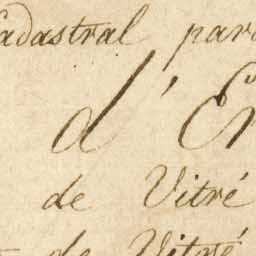 Cadastral par
d'Er
de Vitré
de Vitré